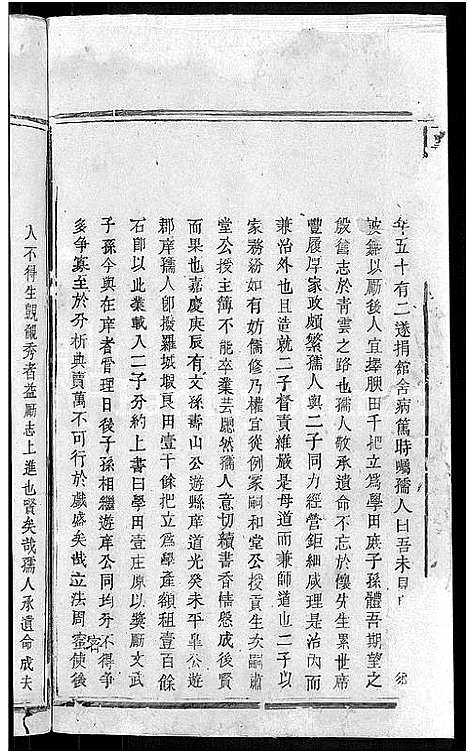 年五十有二遂捐館舍病篤時囑孺人曰吾未
無以勵後人宜擇腴田千把立為學田庶子孫體吾期望之
殷舊志於青雲之路也孺人敬承遺命不忘於懷先生累世席
豐履厚家政頗繁孺人與二子同力經營鉅細咸理是治內而
兼治外也且造就二子督責維嚴是母道而兼師道也二子以
家務紛如有妨儒修乃權宜從例冢嗣和堂公授貢生次嗣肅
堂公授主簿不能卒業芸窗然孺人意切續書香情愍成後賢
而果也嘉慶庚辰有文孫壽山公遊縣庠道光癸未平皐公遊
郡庠孺人卽撥羅城塅良田壹千餘把立為學產額租壹百餘
石卽以此業載入二子分約上書曰學田壹庄原以奬勵文武
子孫今與在庠者管理日後子孫相繼遊庠公同均分不得爭
多爭寡至於分析典賣萬不可行於戲盛矣哉立法周密使後
人不得生覬覦秀者益勵志上進也賢矣哉孺人承遺命成夫